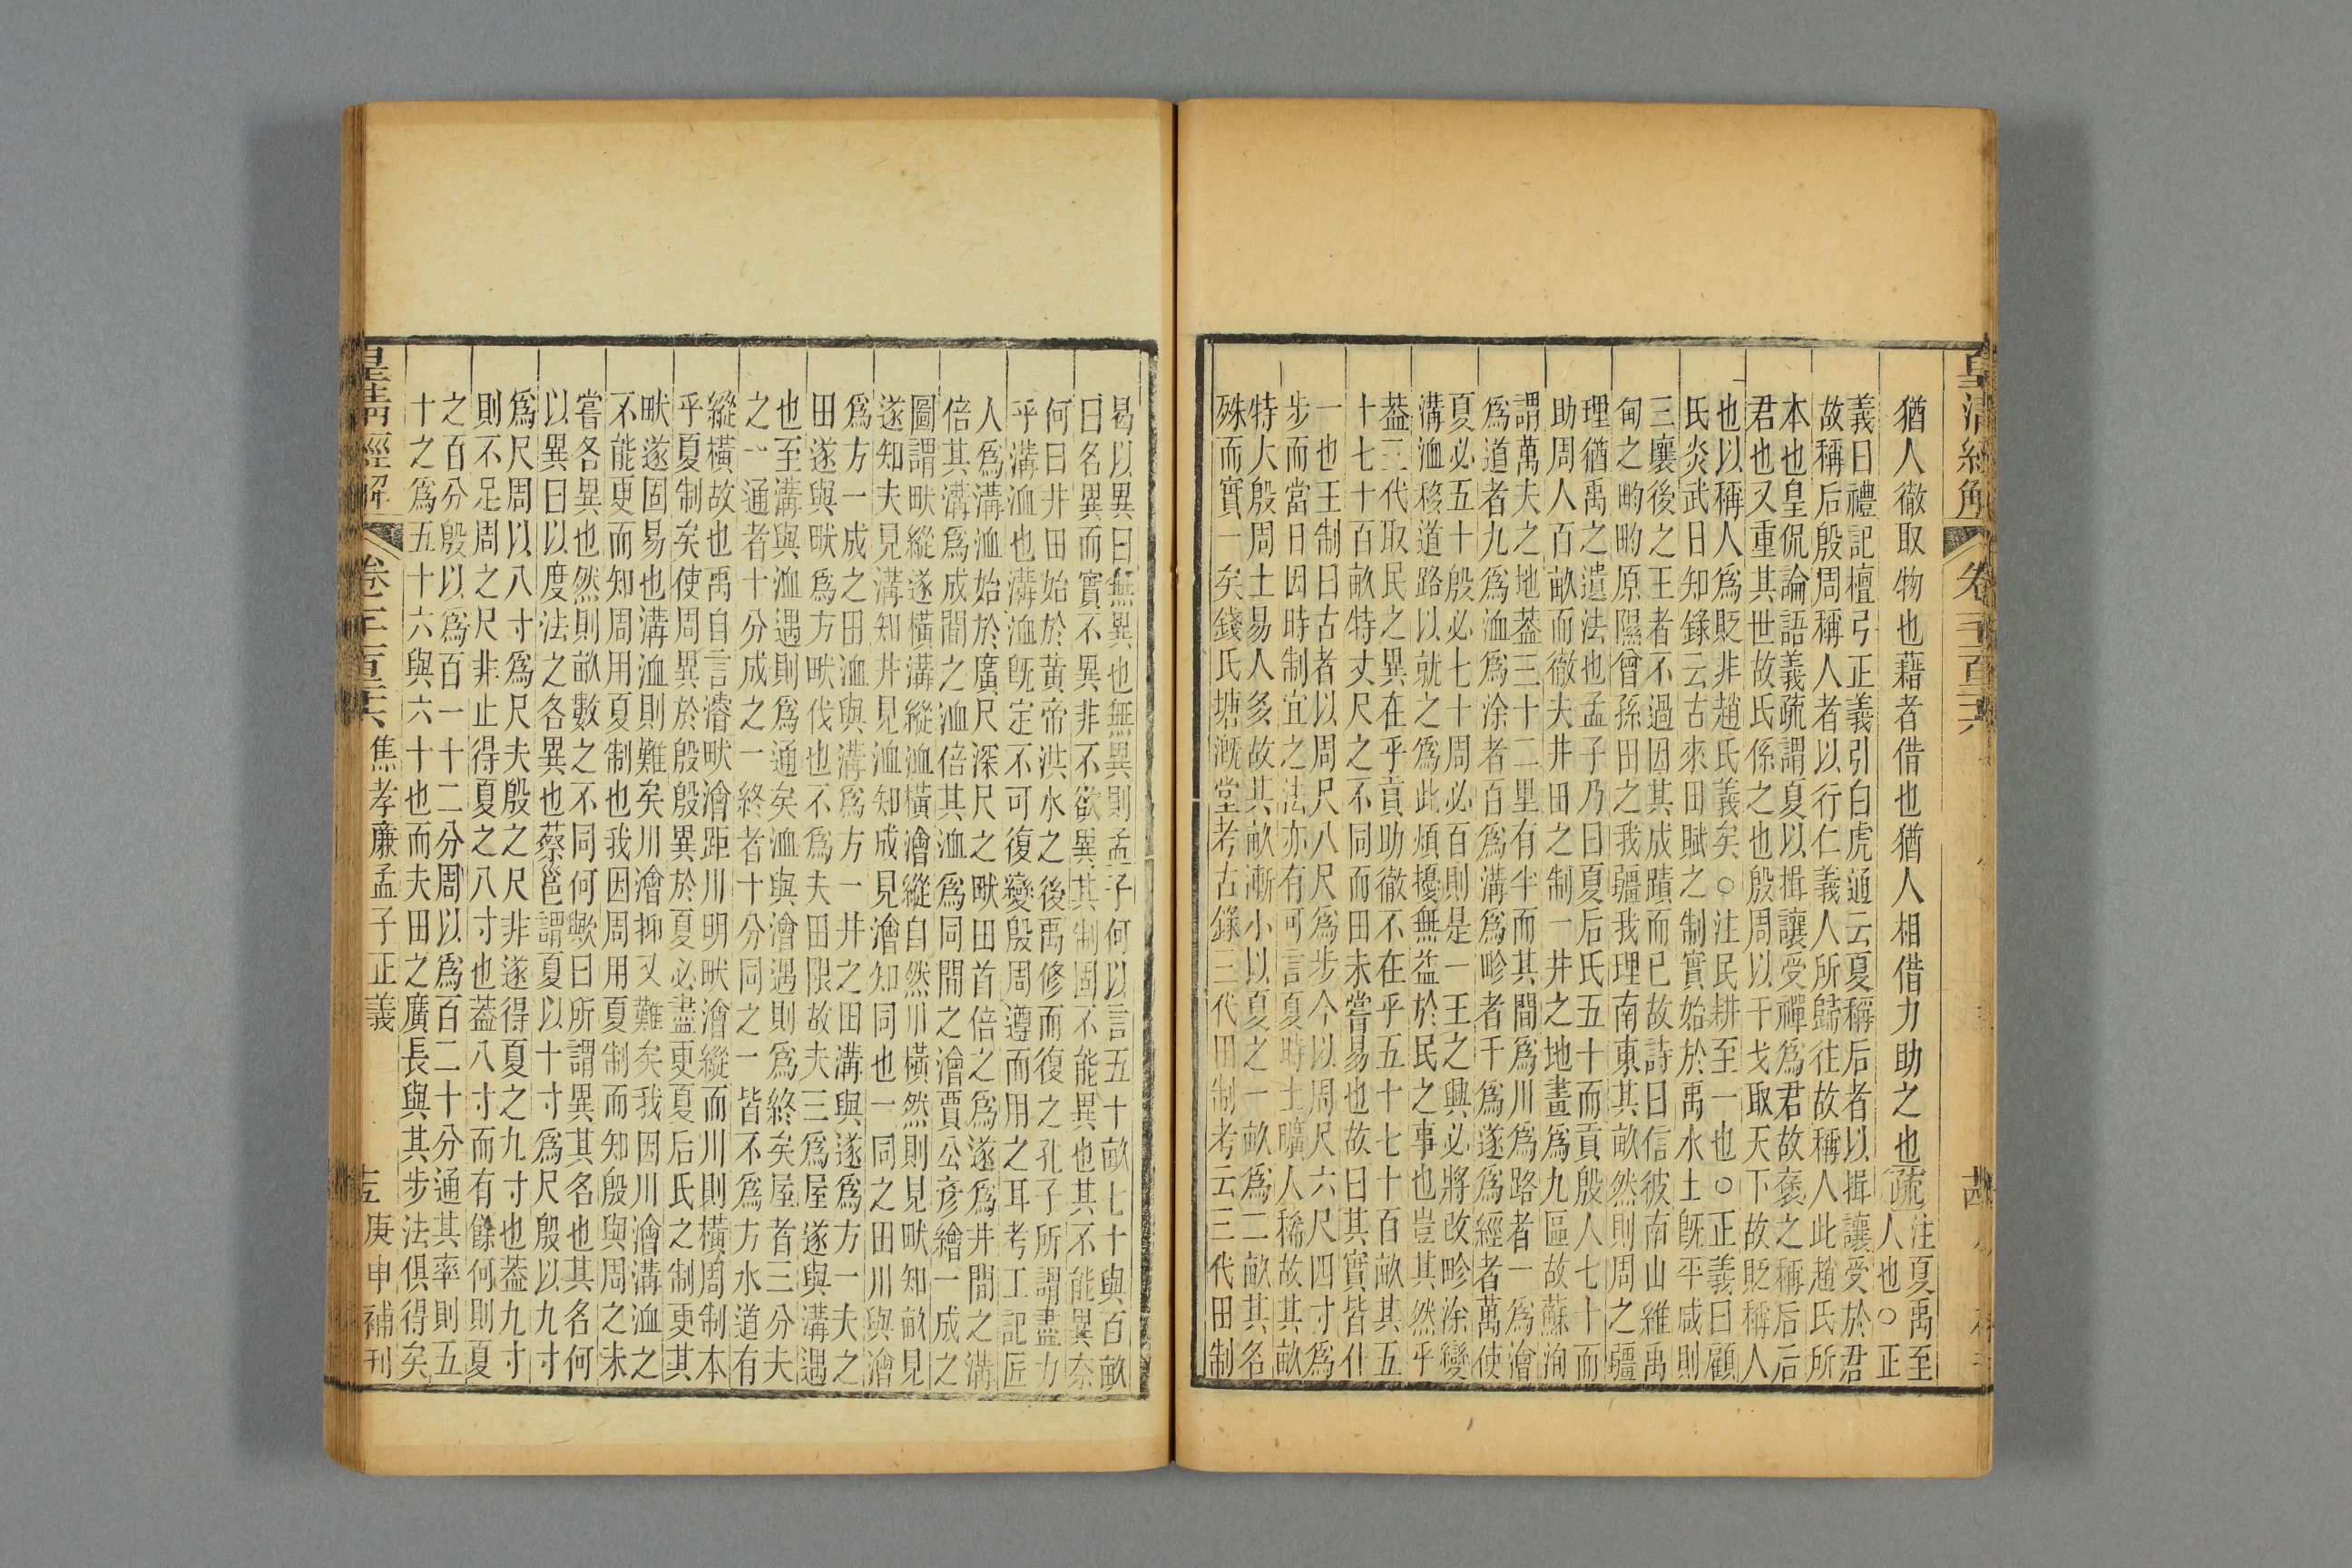 猶人徹取物也藉者借也猶人相借力助之也疏
注夏禹至
人也○正
義曰禮記檀弓正義引白虎通云夏稱后者以揖讓受於君
故稱后殷周稱人者以行仁義人所歸往故稱人此趙氏所
本也皇侃論語義疏謂夏以揖讓受禪爲君故褒之稱后后
君也又重其世故氏係之也殷周以干戈取天下故貶稱人
也以稱人爲貶非趙氏義矣○注民耕至一也○正義曰顧
氏炎武日知錄云古來田賦之制實始於禹水土既平咸則
三壤後之王者不過因其成蹟而已故詩曰信彼南山維禹
甸之畇畇原隰曾孫田之我疆我理南東其畝然則周之疆
理猶禹之遺法也孟子乃曰夏后氏五十而貢殷人七十而
助周人百畝而徹夫井田之制一井之地畫爲九區故蘇洵
謂萬夫之地葢三十二里有半而其間爲川爲路者一爲澮
爲道者九爲洫爲涂者百爲溝爲畛者千爲遂爲經者萬使
夏必五十殷必七十周必百則是一王之興必將改畛涂變
溝洫移道路以就之爲此煩擾無益於民之事也豈其然乎
葢三代取民之異在乎貢助徹不在乎五十七十百畝其五
十七十百畝特丈尺之不同而田未嘗易也故曰其實皆什
一也王制曰古者以周尺八尺爲步今以周尺六尺四寸爲
步而當日因時制宜之法亦有可言夏時土曠人稀故其畝
特大殷周土易人多故其畝漸小以夏之一畝爲二畝其名
殊而實一矣錢氏塘溉堂考古錄三代田制考云三代田制
曷以異曰無異也無異則孟子何以言五十畝七十與百畝
曰名異而實不異非不欲異其制固不能異也其不能異奈
何曰井田始於黃帝洪水之後禹修而復之孔子所謂盡力
乎溝洫也溝洫既定不可復變殷周遵而用之耳考工記匠
人爲溝洫始於廣尺深尺之畎田首倍之爲遂爲井間之溝
倍其溝爲成間之洫倍其洫爲同間之澮賈公彥繪一成之
圖謂畎縱遂橫溝縱洫橫澮縱自然川橫然則見畎知畝見
遂知夫見溝知井見洫知成見澮知同也一同之田川與澮
爲方一成之田洫與溝爲方一井之田溝與遂爲方一夫之
田遂與畎爲方畎伐也不爲夫田限故夫三爲屋遂與溝遇
也至溝與洫遇則爲通矣洫與澮遇則爲終矣屋者三分夫
之一通者十分成之一終者十分同之一皆不爲方水道有
縱橫故也禹自言濬畎澮距川明畎澮縱而川則橫周制本
乎夏制矣使周異於殷殷異於夏必盡更夏后氏之制更其
畎遂固易也溝洫則難矣川澮抑又難矣我因川澮溝洫之
不能更而知周用夏制也我因周用夏制而知殷與周之未
嘗各異也然則畝數之不同何歟曰所謂異其名也其名何
以異曰以度法之各異也蔡邕謂夏以十寸爲尺殷以九寸
爲尺周以八寸爲尺夫殷之尺非遂得夏之九寸也葢九寸
則不足周之尺非止得夏之八寸也葢八寸而有餘何則夏
之百分殷以爲百一十二分周以爲百二十分通其率則五
十之爲五十六與六十也而夫田之廣長與其步法俱得矣
皇清經解
焦孝廉孟子正義
庚申補刊